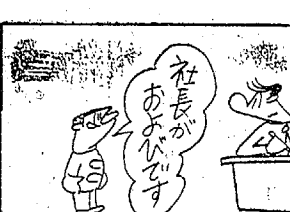 社長が
およびです